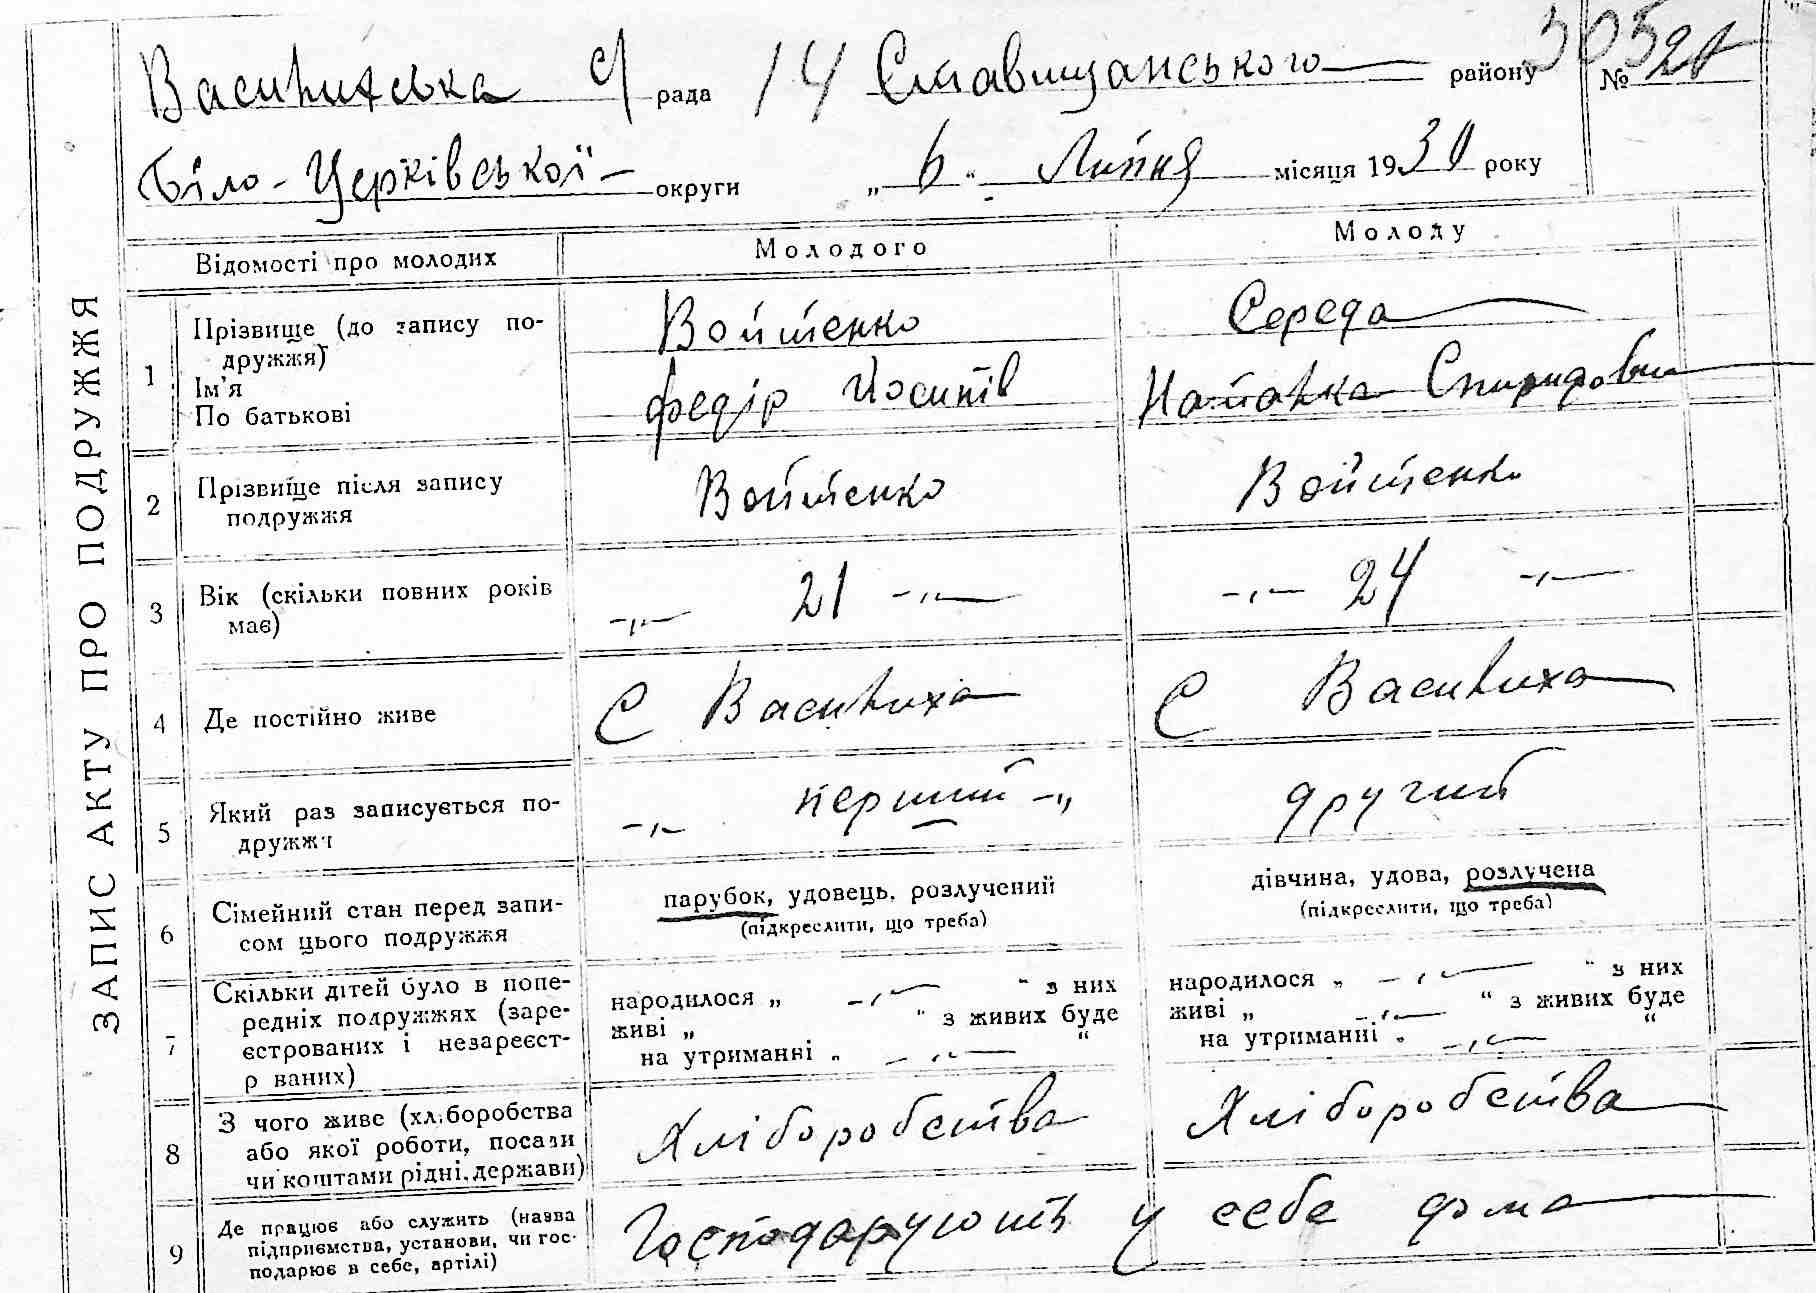 ЗАПИС АКТУ ПРО ПОДРУЖЖЯ
Василихська с/рада 14 Ставищанського району № 20
Біло-Церківської округи „6“ Липня місяця 1930 року
Відомості про молодих Молодого Молоду
1 Прізвище (до запису подружжя) Войтенко Середа
Ім'я
По батькові Федір Йосипів Спиридовни
2 Прізвище після запису Войтенко Войтенко
подружжя
3 Вік (скільки повних років -„- 21 -„- -„- 24 -„-
має)
4 Де постійно живе С Василиха С Василиха
5 Який раз записується по- -„- перший -„- другий
дружжя
6 Сімейний стан перед запи- парубок, удовець, розлучений дівчина, удова, розлучена
сом цього подружжя (підкреслити, що треба) (підкреслити, що треба)
7 Скільки дітей було в попе- народилося „ -„- “ з них народилося „ -„- “ з них
редніх подружжях (заре- живі „ “ з живих буде живі „ -„- “ з живих буде
єстрованих і незареєст- на утриманні „ -„- “ на утриманні „ -„- “
р ваних)
8 З чого живе (хл.боробства Хліборобства Хліборобства
або якої роботи, посади
чи коштами рідні, держави)
9 Де працює або служить (назва Господарують у себе дома
підприємства, установи, чи гос-
подарює в себе, артілі)